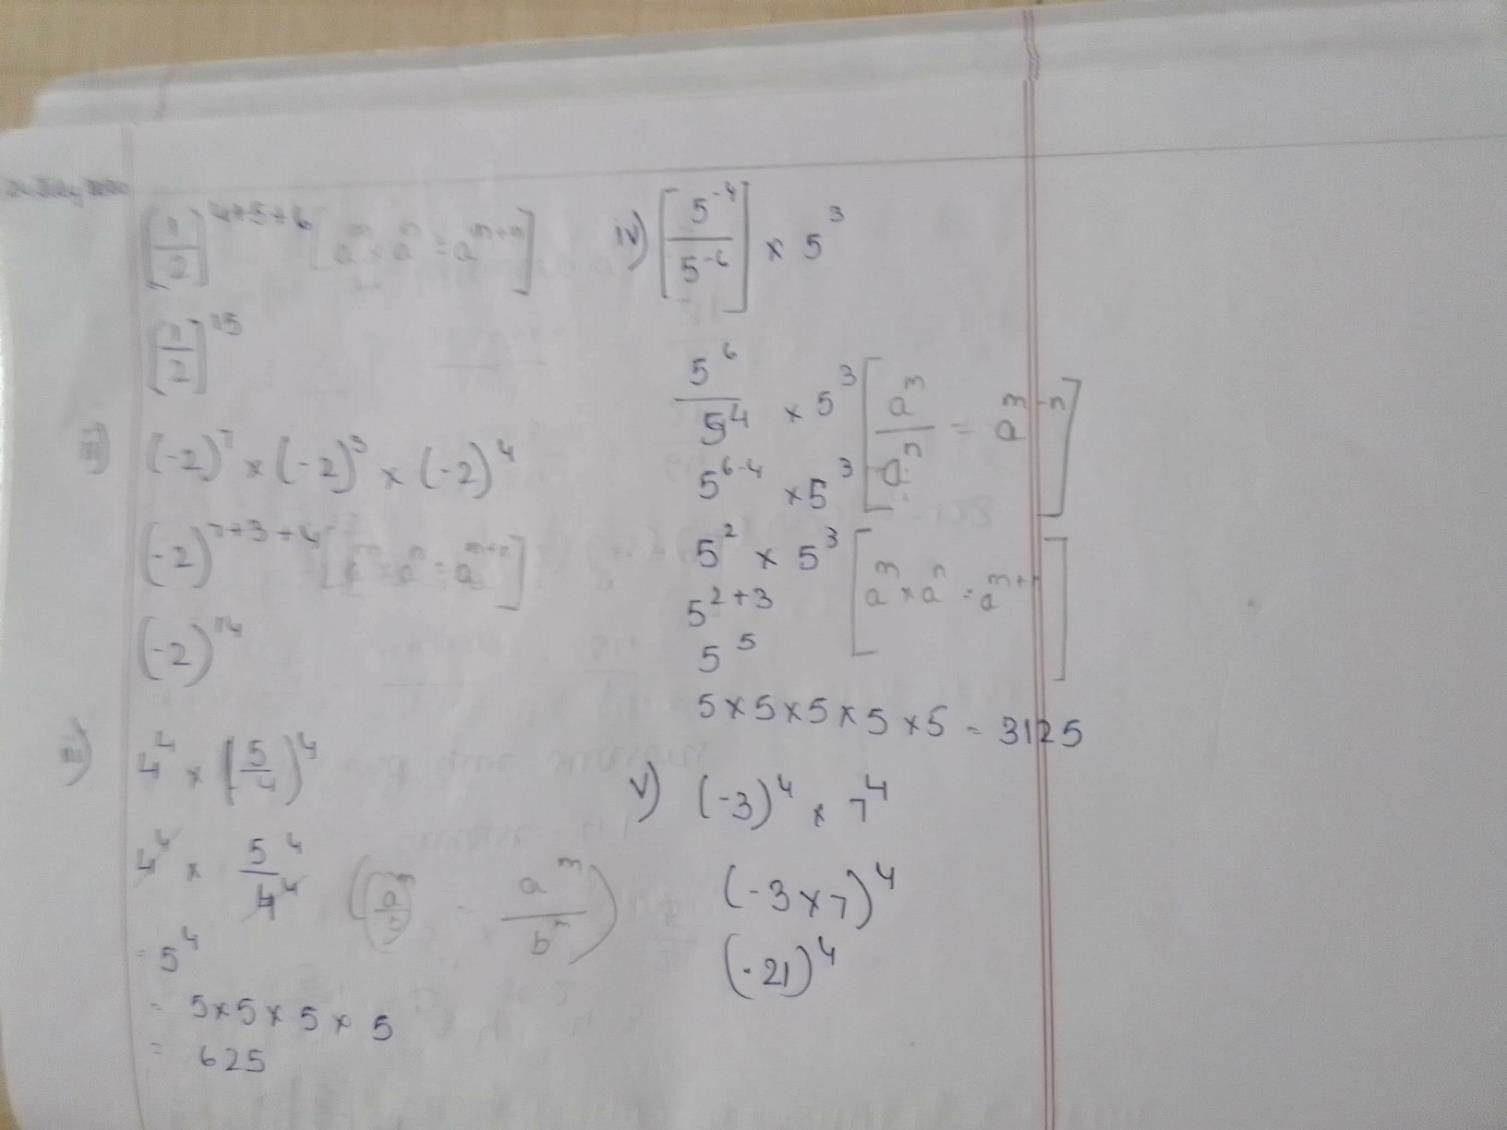 [1/2]^4+5+6 [a^m × a^n = a^m+n]
[1/2]^15
ii) (-2)^7 × (-2)^3 × (-2)^4
(-2)^7+3+4 [a^m × a^n = a^m+n]
(-2)^14
iii) 4^4 × (5/4)^4
4^4 × 5^4/4^4 ((a/b)^m = a^m/b^m)
= 5^4
= 5×5×5×5
= 625
iv) [5^-4/5^-6] × 5^3
5^6/5^4 × 5^3 [a^m/a^n = a^m-n]
5^6-4 × 5^3
5^2 × 5^3 [a^m × a^n = a^m+n]
5^2+3
5^5
5×5×5×5×5 = 3125
v) (-3)^4 × 7^4
(-3×7)^4
(-21)^4